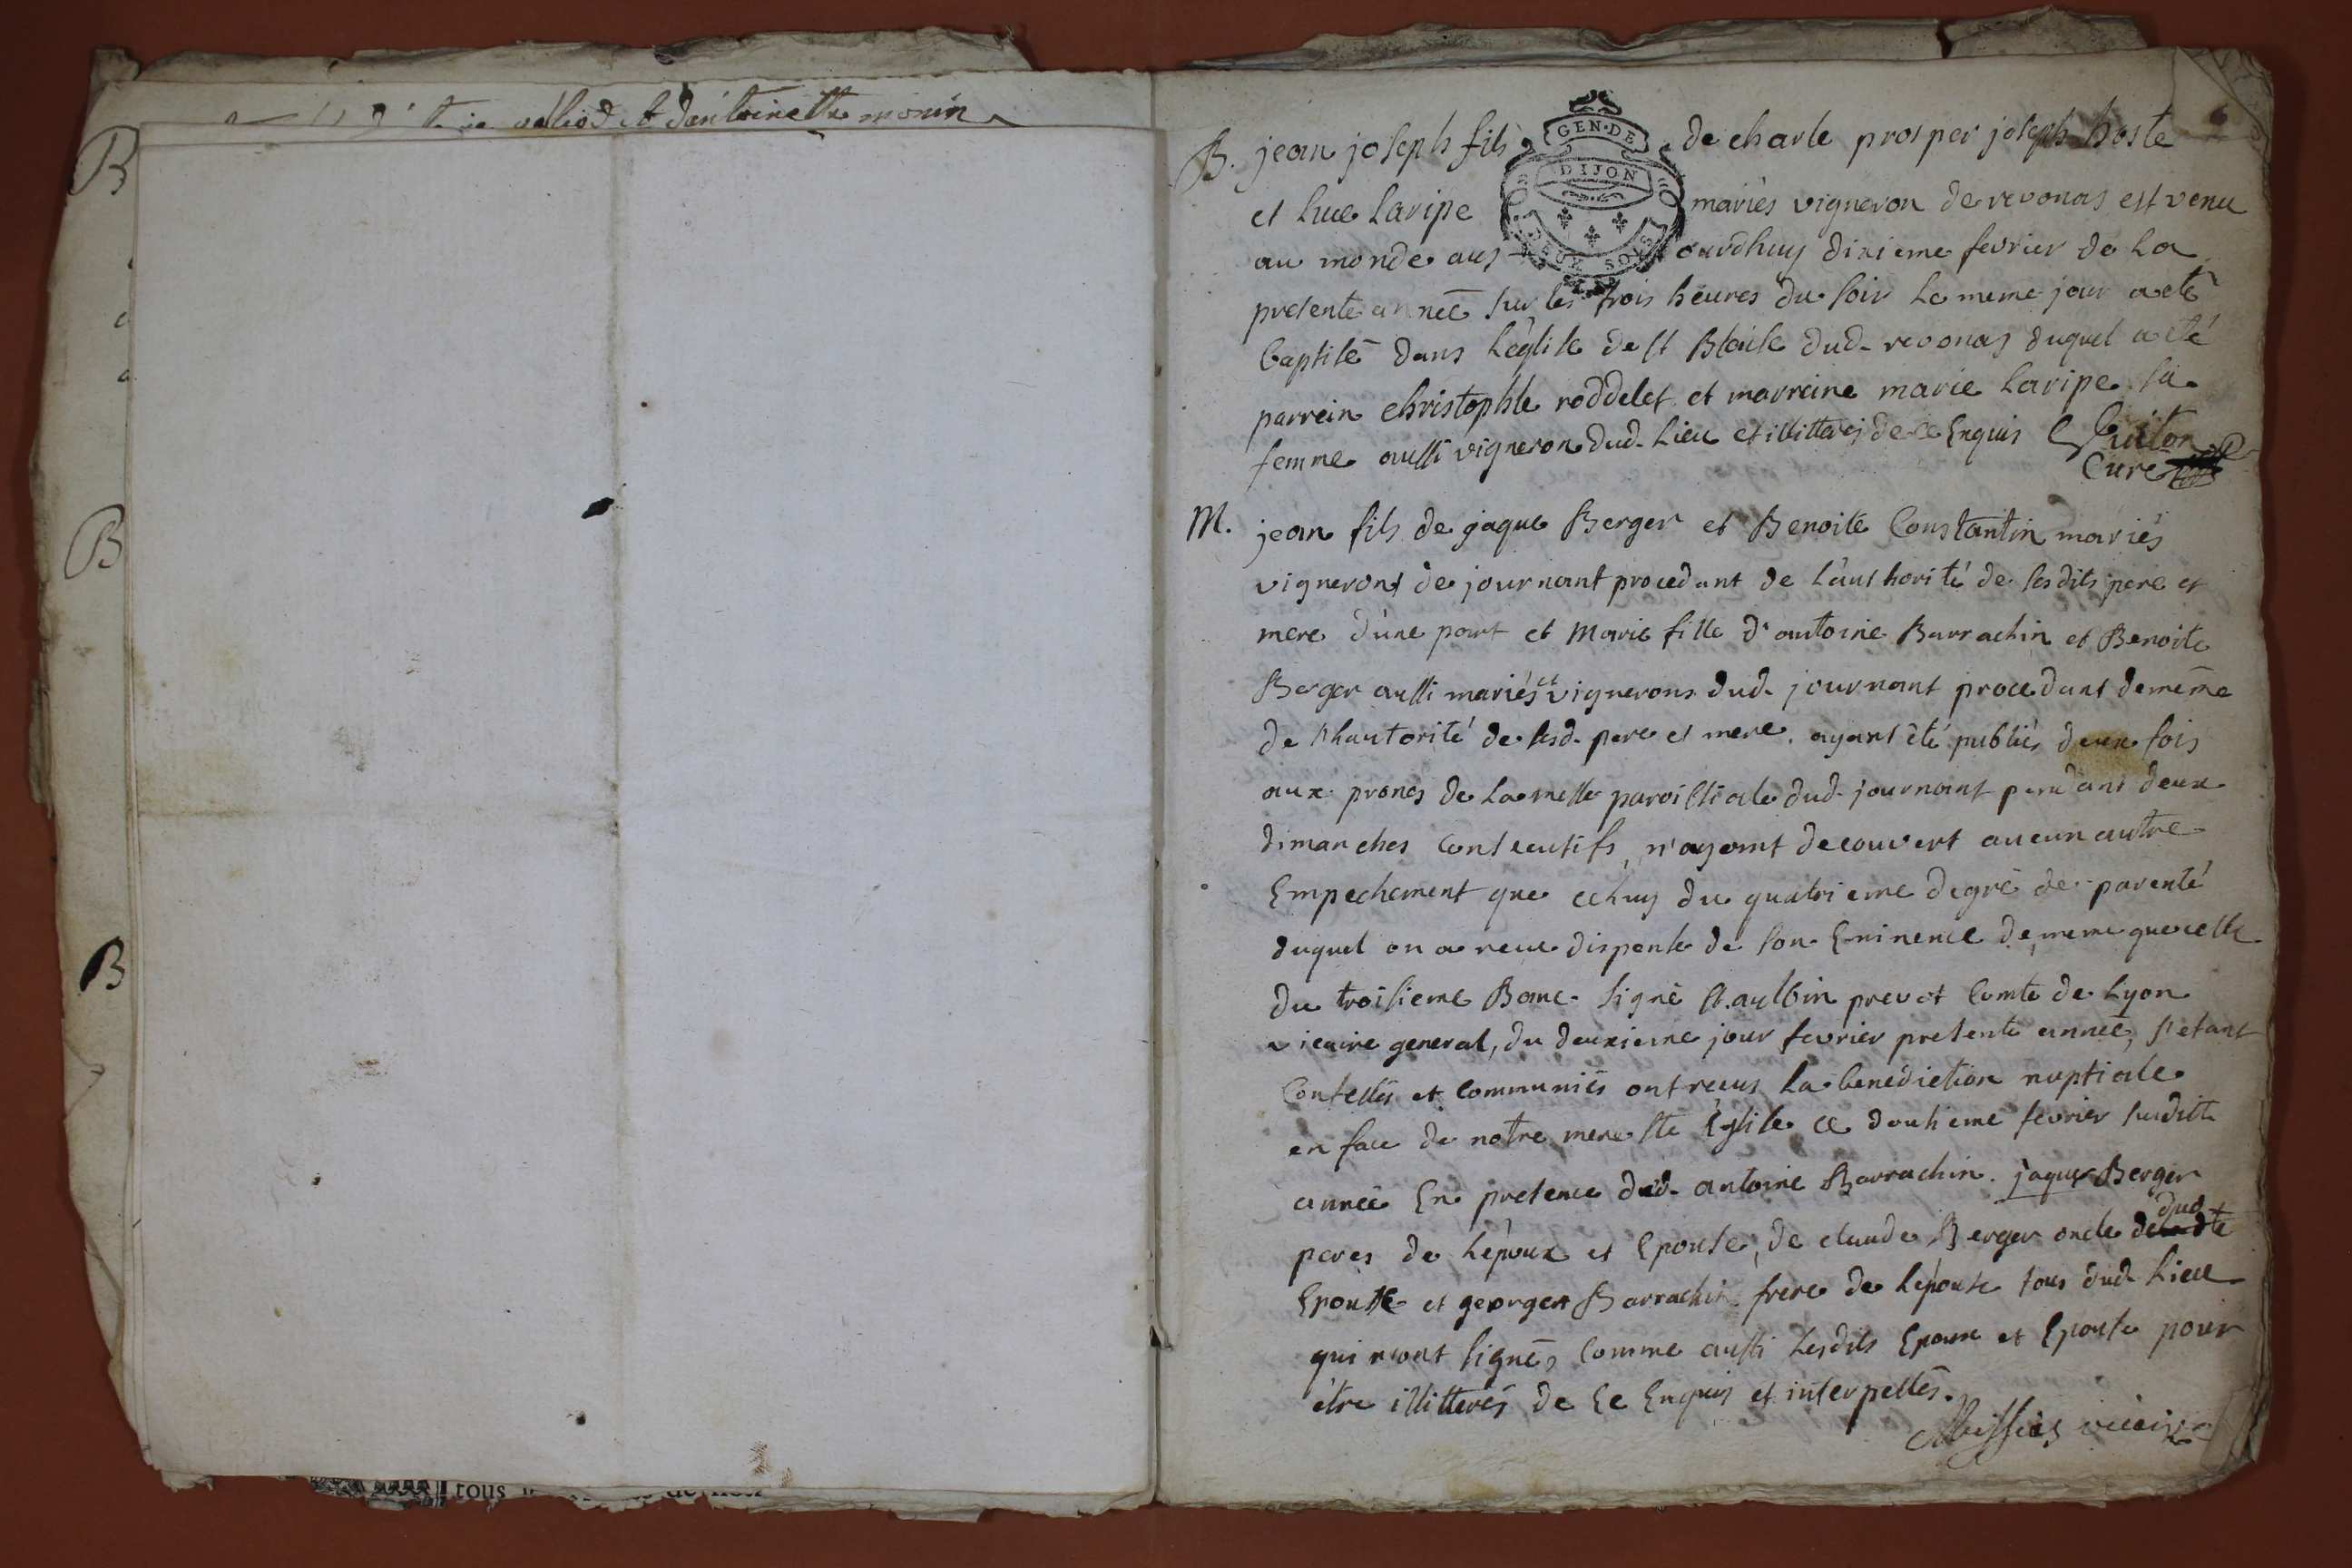 et d'antoinette morin
B
B
B
tous
6
B. jean joseph fils de charle prosper joseph hoste
GEN. DE
DIJON
DEUX SOLS
et luce laripe mariés vigneron de revonas est venu
au monde auj ourdhuy dixieme fevrier de la
presente année sur les trois heures du soir le meme jour a eté
baptisé dans l'eglise de st Blaise dud. revonas duquel a eté
parrein christophle roddelet et marreine marie laripe sa
femme aussi vigneron dud. lieu et illitterés de ce Enquis Guiton
Curé
M. jean fils de jaque Berger et Benoite Constantin mariés
vignerons de journant procedant de l'authorité de ses dits pere et
mere d'une part et Marie fille d'antoine Barrachin et Benoite
Berger aussi mariés et vignerons dud. journant procedant de même
de l'hautorité de sesd. pere et mere. ayant été publiés deux fois
aux prones de la messe paroissiale dud. journant pendant deux
dimanches consecutifs, n'ayant decouvert aucun autre
Empechement que celuy du quatrieme degré de parenté
duquel on a reçue dispense de son Eminence de meme que celle
du troisieme Banc. signé st. aulbin prevot Comte de Lyon
vicaire general, du deuxieme jour fevrier presente année, s'etant
Confessés et communiés ont reçus la benediction nuptiale
en face de notre mere ste Eglise ce douzieme fevrier susditte
année En presence dud. antoine Barrachin. jaque Berger
peres de l'epoux et Epouse, de claude Berger oncle dud
Epoux et george Barrachin frere de l'epouse tous dud. lieu
qui n'ont signés comme aussi lesdits Epoux et Epouse pour
être illitterés de Ce Enquis et interpellés.
vicaire